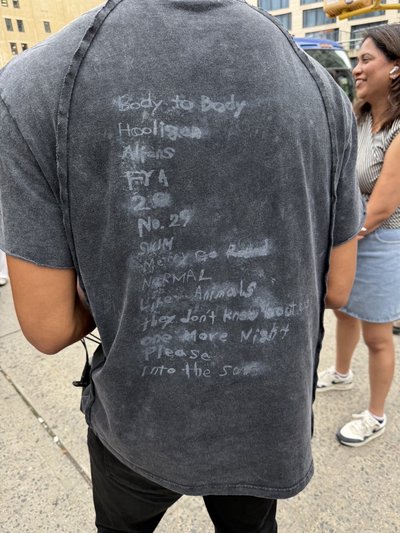 Body to Body
Hooligan
Aliens
FYA
2.0
No. 29
SWIM
Merry Go Round
NORMAL
Like Animals
they don't know bout
one More Night
Please
into the sun